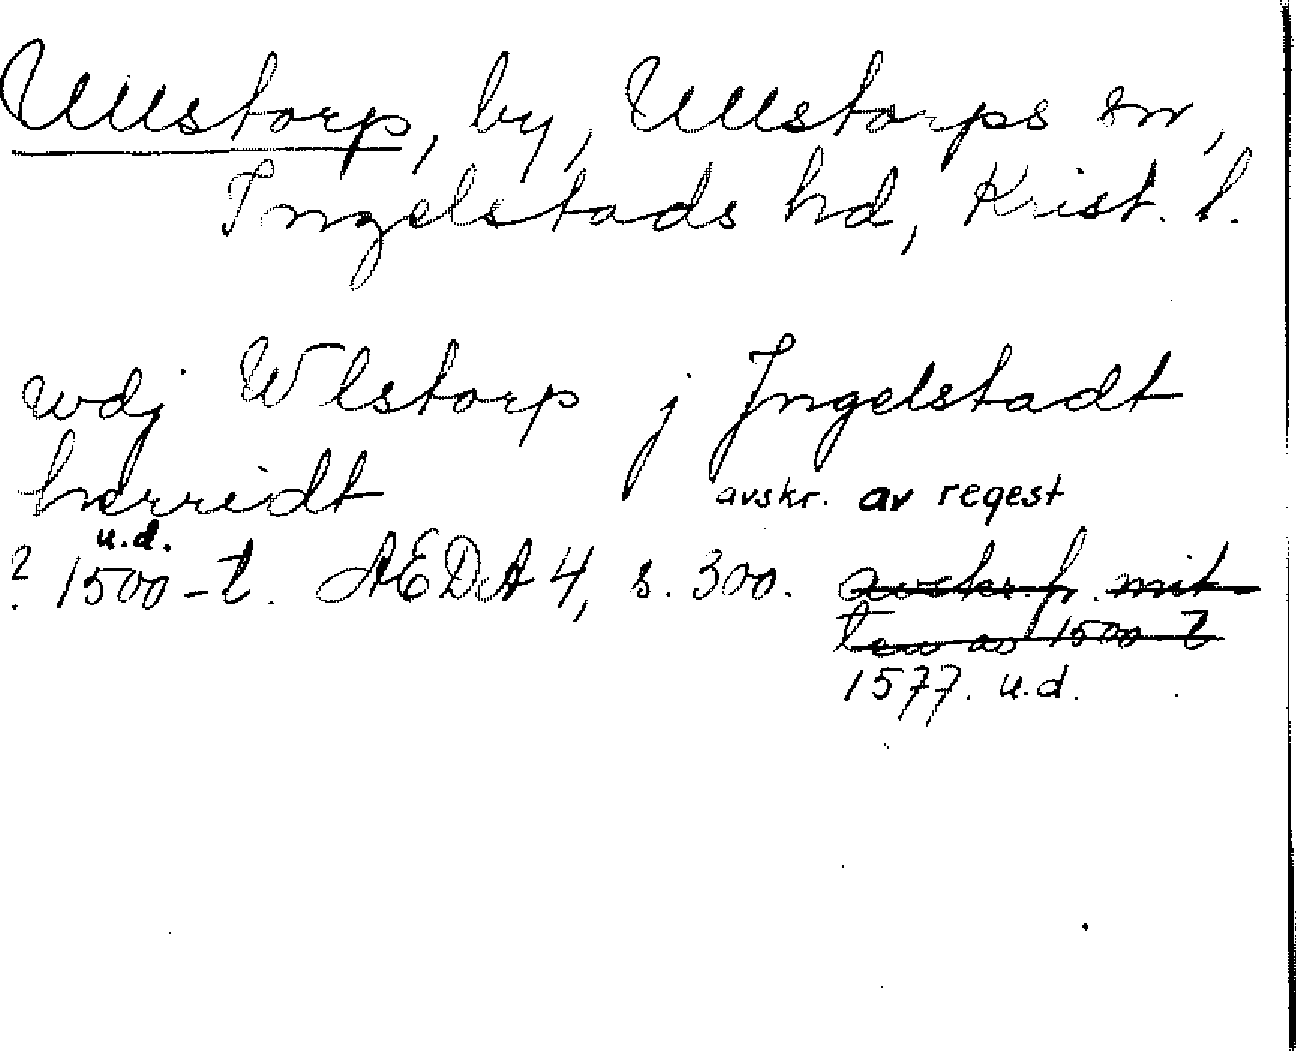 Ullstorp, by, Ullstorps sn,
Ingelstads hd, Krist. l.
wdj Wlstorp j Jngelstadt
herridt avskr. av regest
u.d.
? 1500-t. AEDA 4, s. 300. avskr fr. mit-
ten av 1500-t
1577. u.d.